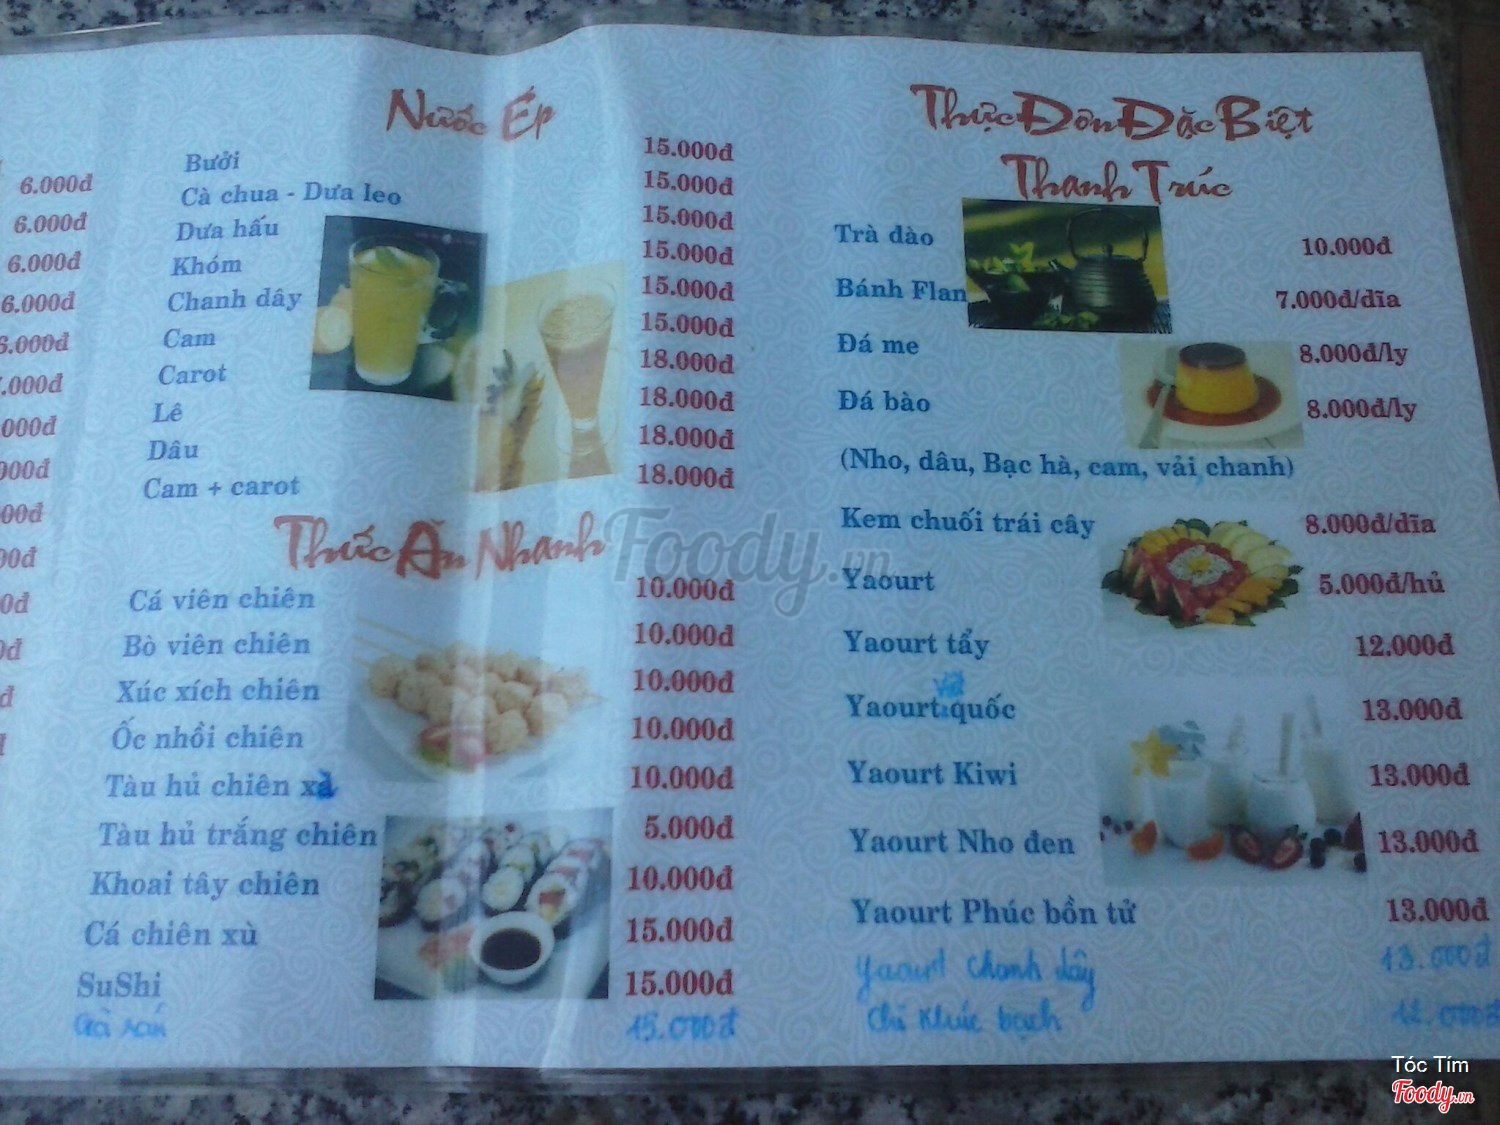 6.000đ
6.000đ
6.000đ
6.000đ
6.000đ
.000đ
000đ
000đ
000đ
00đ
0đ
0đ
đ
Nước Ép
Bưởi 15.000đ
Cà chua - Dưa leo 15.000đ
Dưa hấu 15.000đ
Khóm 15.000đ
Chanh dây 15.000đ
Cam 15.000đ
Carot 18.000đ
Lê 18.000đ
Dâu 18.000đ
Cam + carot 18.000đ
Thức Ăn Nhanh
Cá viên chiên 10.000đ
Bò viên chiên 10.000đ
Xúc xích chiên 10.000đ
Ốc nhồi chiên 10.000đ
Tàu hủ chiên xả 10.000đ
Tàu hủ trắng chiên 5.000đ
Khoai tây chiên 10.000đ
Cá chiên xù 15.000đ
SuShi 15.000đ
15.000đ
Thực Đơn Đặc Biệt
Thanh Trúc
Trà đào 10.000đ
Bánh Flan 7.000đ/dĩa
Đá me 8.000đ/ly
Đá bào 8.000đ/ly
(Nho, dâu, Bạc hà, cam, vải, chanh)
Kem chuối trái cây 8.000đ/dĩa
Yaourt 5.000đ/hủ
Yaourt tẩy 12.000đ
Yaourt việt quốc 13.000đ
Yaourt Kiwi 13.000đ
Yaourt Nho đen 13.000đ
Yaourt Phúc bồn tử 13.000đ
Yaourt Chanh dây 13.000đ
Chi Khúc bạch 12.000đ
Foody.vn
Tóc Tím
Foody.vn